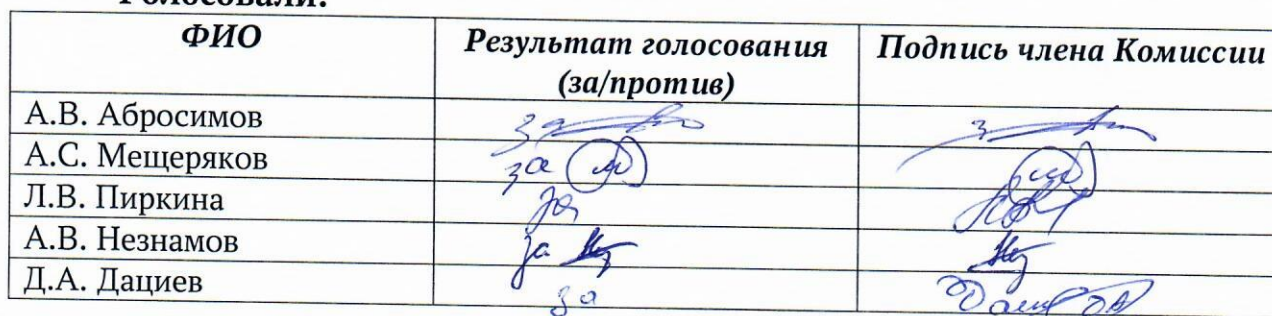 Голосовали:
ФИО Результат голосования (за/против) Подпись члена Комиссии
А.В. Абросимов за
А.С. Мещеряков за
Л.В. Пиркина за
А.В. Незнамов за
Д.А. Дациев за